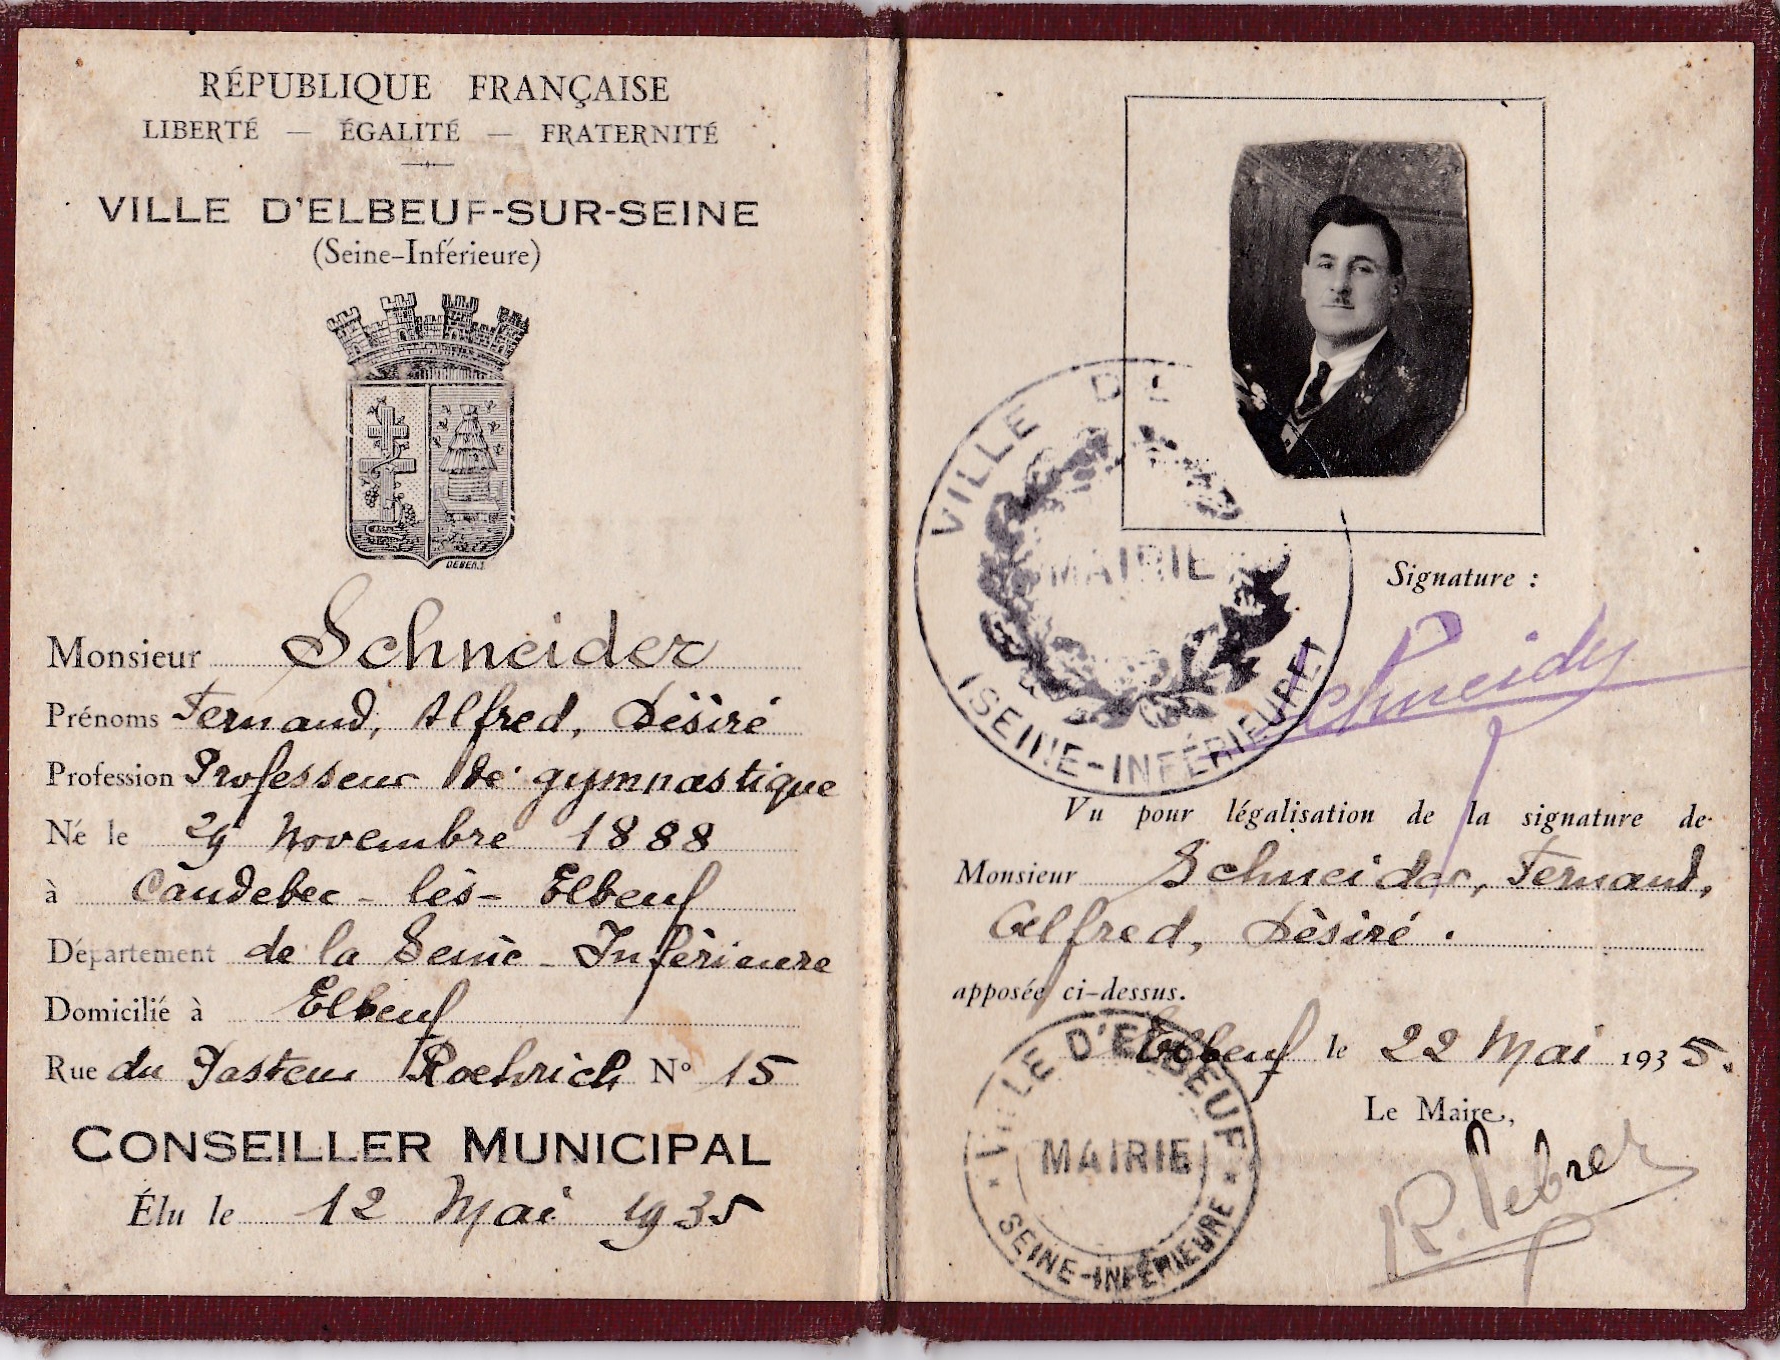 RÉPUBLIQUE FRANÇAISE
LIBERTÉ — ÉGALITÉ — FRATERNITÉ
VILLE D'ELBEUF-SUR-SEINE
(Seine-Inférieure)
Monsieur Schneider
Prénoms Fernand, Alfred, Désiré
Profession Professeur de gymnastique
Né le 29 Novembre 1888
à Caudebec-lès-Elbeuf
Département de la Seine-Inférieure
Domicilié à Elbeuf
Rue du Pasteur Roehrich N° 15
CONSEILLER MUNICIPAL
Élu le 12 Mai 1935
VILLE DE
MAIRIE
(SEINE-INFÉRIEURE)
Signature :
Schneider
Vu pour légalisation de la signature de
Monsieur Schneider, Fernand,
Alfred, Désiré.
apposée ci-dessus.
Elbeuf le 22 Mai 1935.
Le Maire,
VILLE D'ELBEUF
MAIRIE
SEINE-INFÉRIEURE